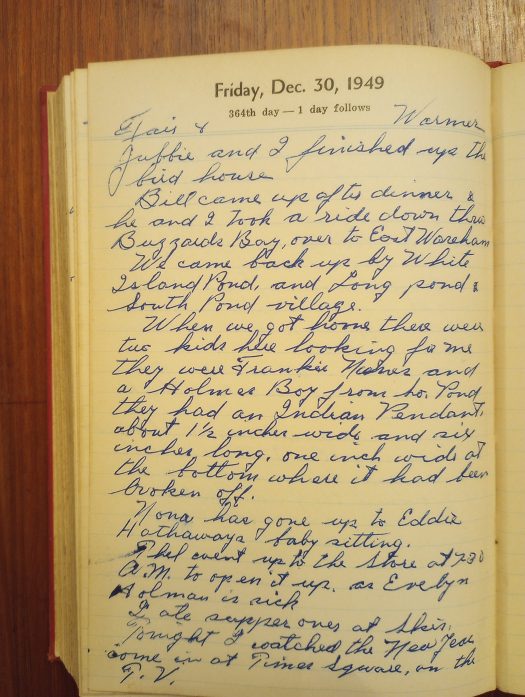 Friday, Dec. 30, 1949
364th day — 1 day follows
Fair & Warmer
Juffie and I finished up the
bird house
Bill came up after dinner &
he and I took a ride down thru
Buzzards Bay, over to East Wareham
We came back up by White
Island Pond, and Long pond &
South Pond village.
When we got home there were
two kids here looking for me
they were Frankie Nunes and
a Holmes Boy from So. Pond
they had an Indian Pendant,
about 1½ inches wide and six
inches long. one inch wide at
the bottom where it had been
broken off.
Nona has gone up to Eddie
Hathaways baby sitting.
Phil went up to the Store at 7³⁰
A.M. to open it up. as Evelyn
Holman is sick
I ate supper over at
Tonight I watched the New Year
come in at Times Square, on the
T.V.